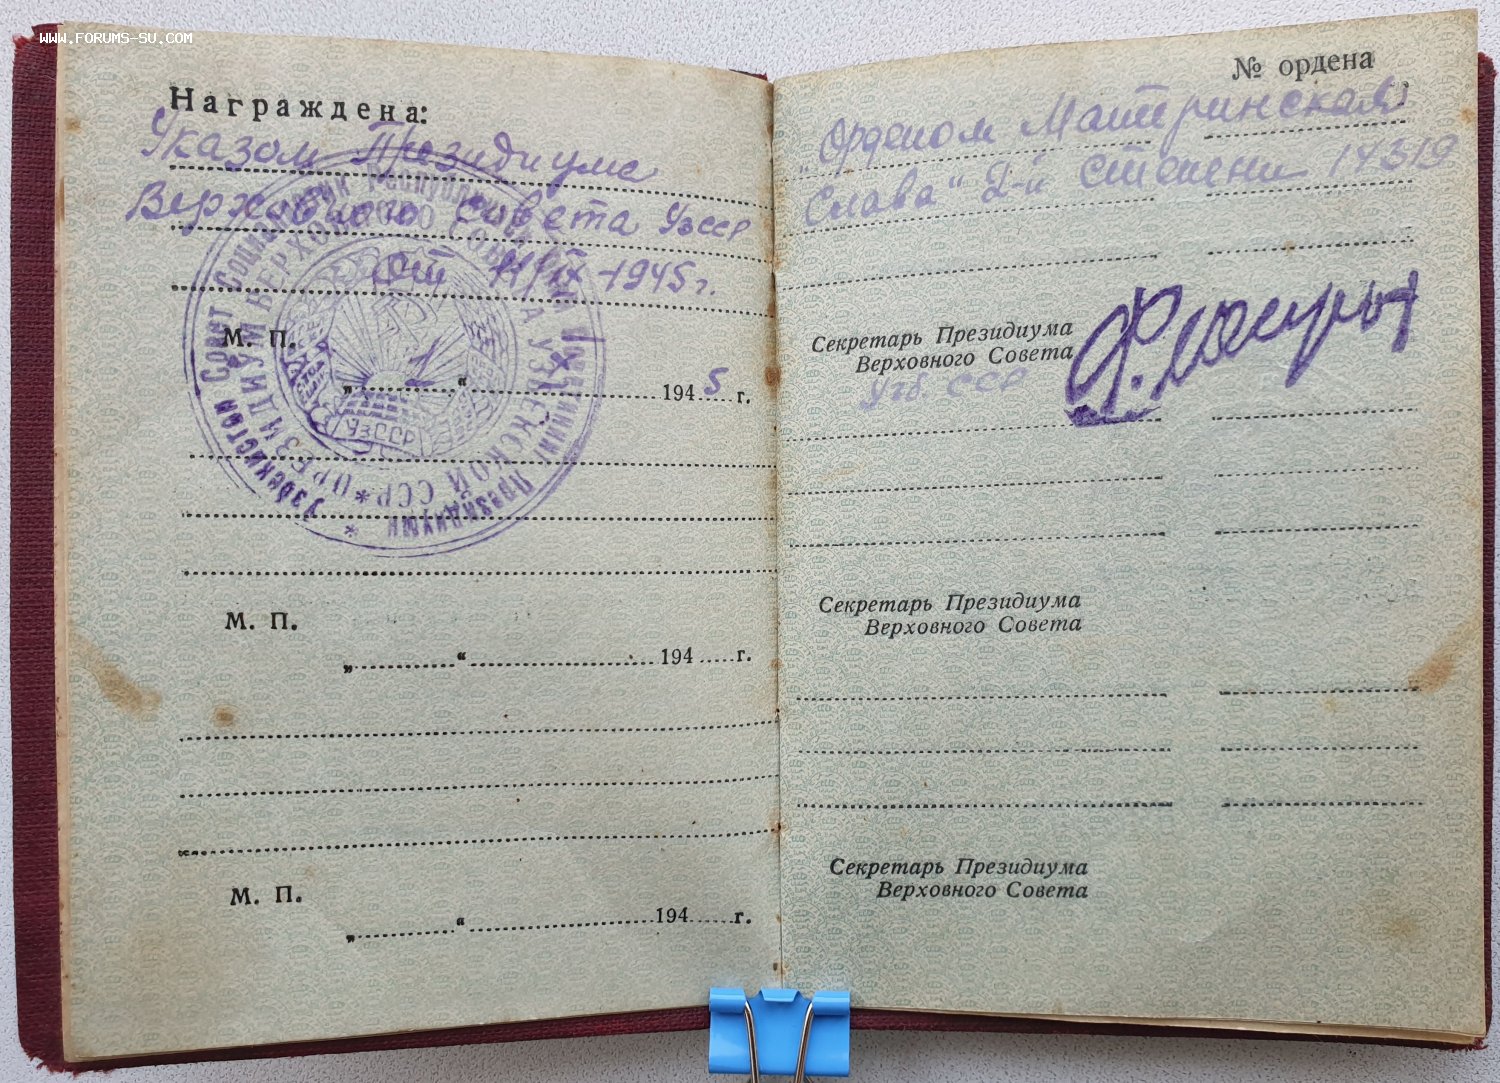 WWW.FORUMS-SU.COM
Награждена:
Указом Президиума
Верховного Совета УзССР
от 11/IX-1945г.
М. П.
„ 1 “ XI 1945 г.
Узбекистон Совет Социалистик Республикаси Верховный Президиуми
* ПРЕЗИДИУМ ВЕРХОВНОГО СОВЕТА УЗБЕКСКОЙ ССР
УзССР
М. П.
„ “ 194 г.
М. П.
„ “ 194 г.
№ ордена
„Орденом Материнская
Слава" 2-й степени 17319
Секретарь Президиума
Верховного Совета
Узб. ССР
Секретарь Президиума
Верховного Совета
Секретарь Президиума
Верховного Совета